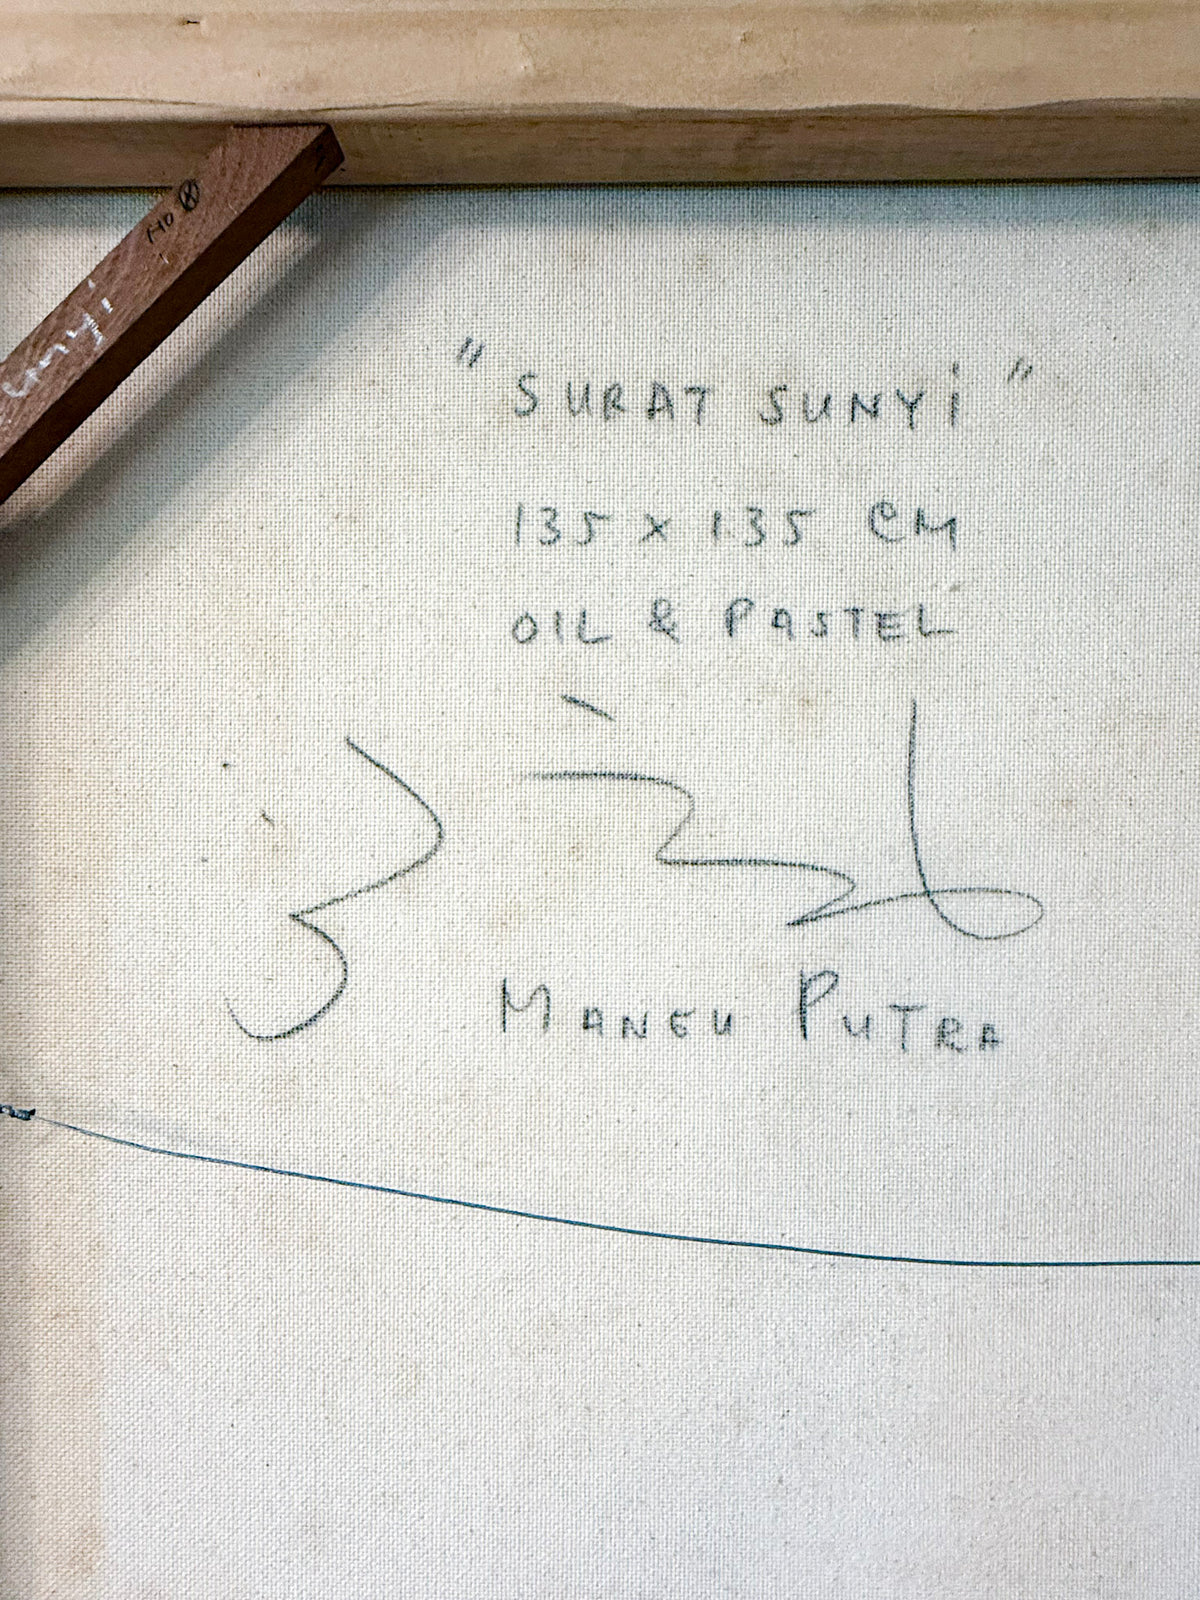 HO ®
" SURAT SUNYi "
135 x 135 CM
OIL & PASTEL
MANEU PUTRA